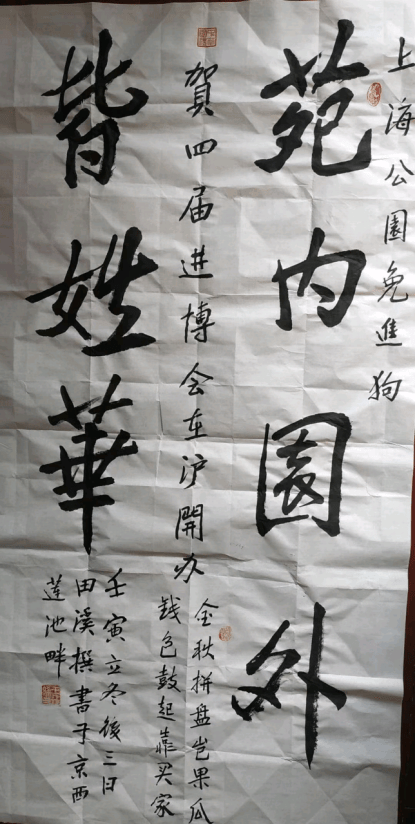 上海公園免進狗
苑内園外
賀四届进博会在沪開办
金秋拼盘岂果瓜
钱包鼓起靠买家
皆姓華
壬寅立冬後三日
田溪撰書于京西
蓮池畔